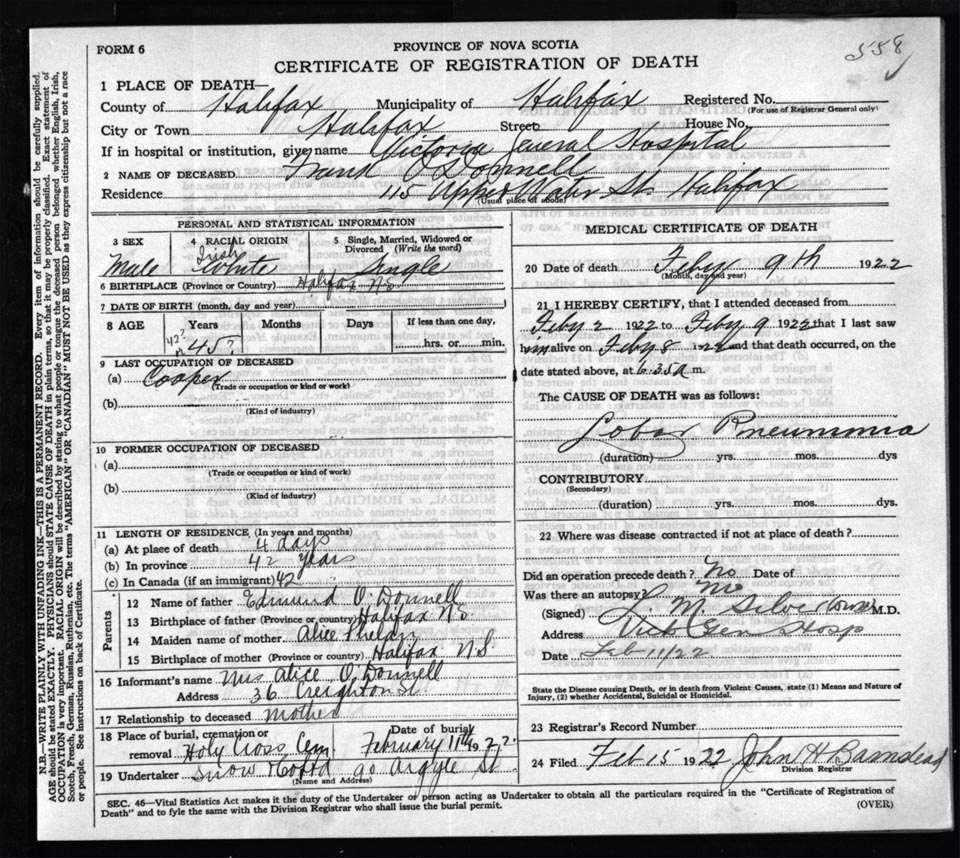 558
FORM 6
PROVINCE OF NOVA SCOTIA
CERTIFICATE OF REGISTRATION OF DEATH
1 PLACE OF DEATH—
County of Halifax Municipality of Halifax Registered No.
(For use of Registrar General only)
City or Town Halifax Street House No.
If in hospital or institution, give name Victoria General Hospital
2 NAME OF DECEASED Frank O'Donnell
Residence 415 Upper Water St. Halifax
(Usual place of abode)
PERSONAL AND STATISTICAL INFORMATION
3 SEX Male
4 RACIAL ORIGIN Irish White
5 Single, Married, Widowed or Divorced (Write the word) Single
6 BIRTHPLACE (Province or Country) Halifax N.S
7 DATE OF BIRTH (month, day and year)
8 AGE Years Months Days If less than one day,
42? or 45? hrs. or min.
9 LAST OCCUPATION OF DECEASED
(a) Cooper
(Trade or occupation or kind of work)
(b)
(Kind of industry)
10 FORMER OCCUPATION OF DECEASED
(a)
(Trade or occupation or kind of work)
(b)
(Kind of industry)
11 LENGTH OF RESIDENCE (In years and months)
(a) At place of death 4 days
(b) In province 42 years
(c) In Canada (if an immigrant) 42
Parents
12 Name of father Edmund O'Donnell
13 Birthplace of father (Province or country) Halifax N.S
14 Maiden name of mother Alice Phelan
15 Birthplace of mother (Province or country) Halifax N.S.
16 Informant's name Mrs Alice O'Donnell
Address 36 Creighton St.
17 Relationship to deceased Mother
18 Place of burial, cremation or removal Holy Cross Cem
Date of burial February 11th 1922
19 Undertaker Snow & Co Ltd 90 Argyle St
(Name and Address)
MEDICAL CERTIFICATE OF DEATH
20 Date of death Feby 9th 1922
(Month, day and year)
21 I HEREBY CERTIFY, that I attended deceased from
Feby 2 1922 to Feby 9 1922 that I last saw
him alive on Feby 8 1922 and that death occurred, on the
date stated above, at 6.35 a m.
The CAUSE OF DEATH was as follows:
Lobar Pneumonia
(duration) yrs. mos. dys
CONTRIBUTORY
(Secondary)
(duration) yrs. mos. dys.
22 Where was disease contracted if not at place of death?
Did an operation precede death? No Date of
Was there an autopsy? No
(Signed) M. M.D.
Address Vict Gen Hosp
Date Feb 11/22
State the Disease causing Death, or in death from Violent Causes, state (1) Means and Nature of Injury, (2) whether Accidental, Suicidal or Homicidal.
23 Registrar's Record Number
24 Filed Feb 15 1922 John H Barnstead
Division Registrar
SEC. 46—Vital Statistics Act makes it the duty of the Undertaker or person acting as Undertaker to obtain all the particulars required in the "Certificate of Registration of
Death" and to fyle the same with the Division Registrar who shall issue the burial permit.
(OVER)
N.B.—WRITE PLAINLY WITH UNFADING INK—THIS IS A PERMANENT RECORD. Every item of information should be carefully supplied.
AGE should be stated EXACTLY. PHYSICIANS should STATE CAUSE OF DEATH in plain terms, so that it may be properly classified. Exact statement of
OCCUPATION is very important. RACIAL ORIGIN will be described by stating to what people or tongue the deceased person belonged whether English, Irish,
Scotch, French, German, Russian, Ruthenian, etc. The terms "AMERICAN" OR "CANADIAN" MUST NOT BE USED as they express citizenship but not a race
or people. See instructions on back of Certificate.